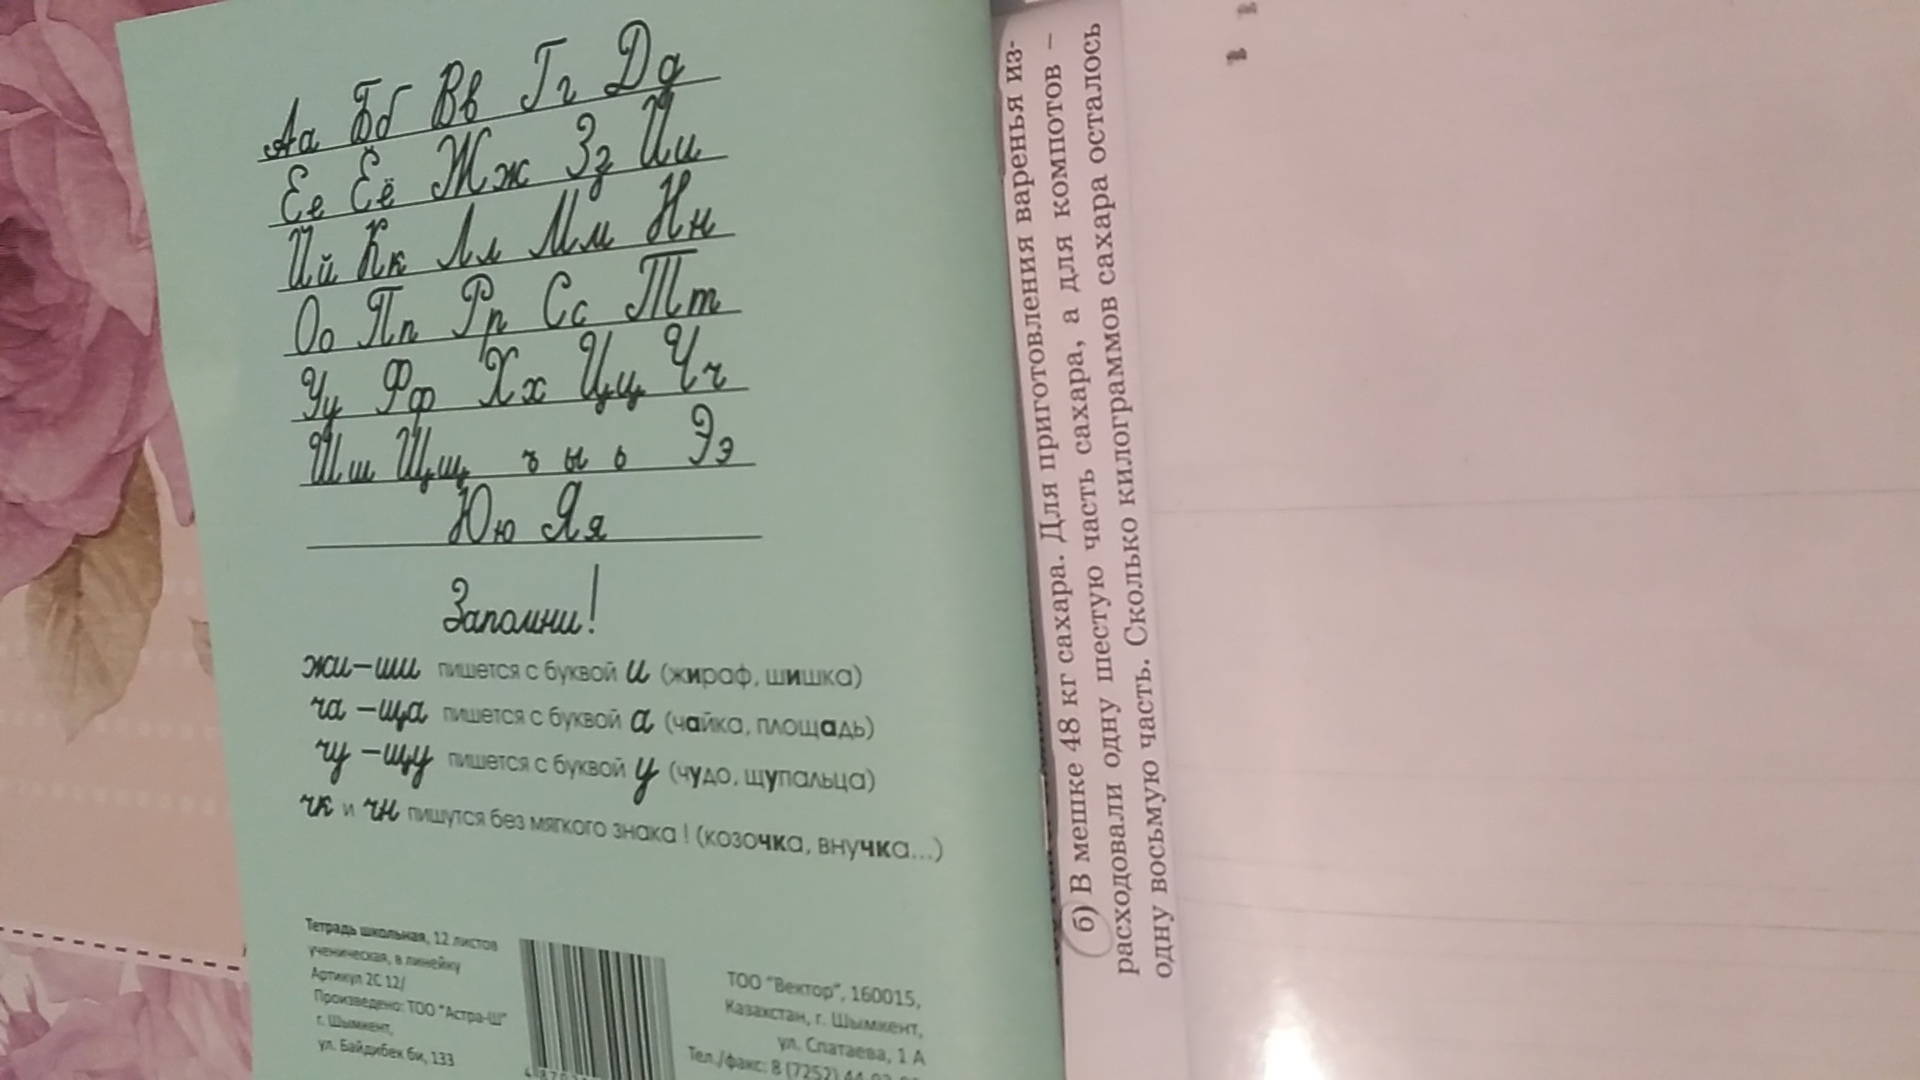 Аа Бб Вв Гг Дд
Ее Ёё Жж Зз Ии
Йй Кк Лл Мм Нн
Оо Пп Рр Сс Тт
Уу Фф Хх Цц Чч
Шш Щщ ъ ы ь Ээ
Юю Яя
Запомни!
жи-ши пишется с буквой и (жираф, шишка)
ча-ща пишется с буквой а (чайка, площадь)
чу-щу пишется с буквой у (чудо, щупальца)
чк и чн пишутся без мягкого знака! (козочка, внучка...)
Тетрадь школьная, 12 листов
ученическая, в линейку
Артикул 2С 12/
Произведено: ТОО "Астра-Ш"
г. Шымкент,
ул. Байдибек би, 133
ТОО "Вектор", 160015,
Казахстан, г. Шымкент,
ул. Спатаева, 1 А
Тел./факс: 8 (7252)
б) В мешке 48 кг сахара. Для приготовления варенья из-
расходовали одну шестую часть сахара, а для компотов –
одну восьмую часть. Сколько килограммов сахара осталось